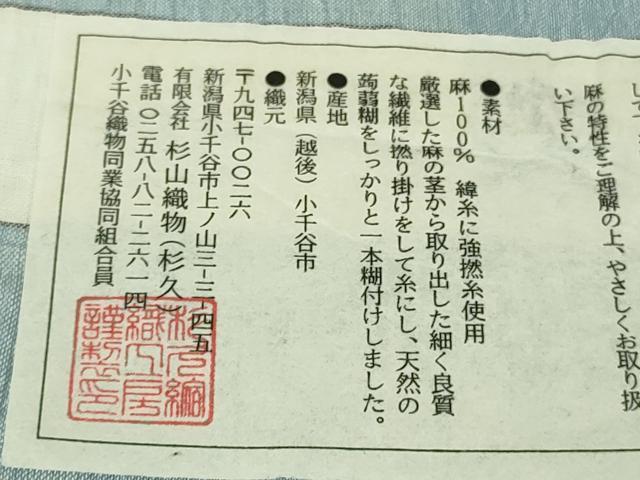 麻の特性をご理解の上、やさしくお取り扱
い下さい。
●素材
麻100% 緯糸に強撚糸使用
厳選した麻の茎から取り出した細く良質
な繊維に撚り掛けをして糸にし、天然の
蒟蒻糊をしっかりと一本糊付けしました。
●産地
新潟県（越後）小千谷市
●織元
〒九四七-〇〇二六
新潟県小千谷市上ノ山三-三-四五
有限会社 杉山織物（杉久）
電話 〇二五八-八二-二六一四
小千谷織物同業協同組合員
織工房
謹製